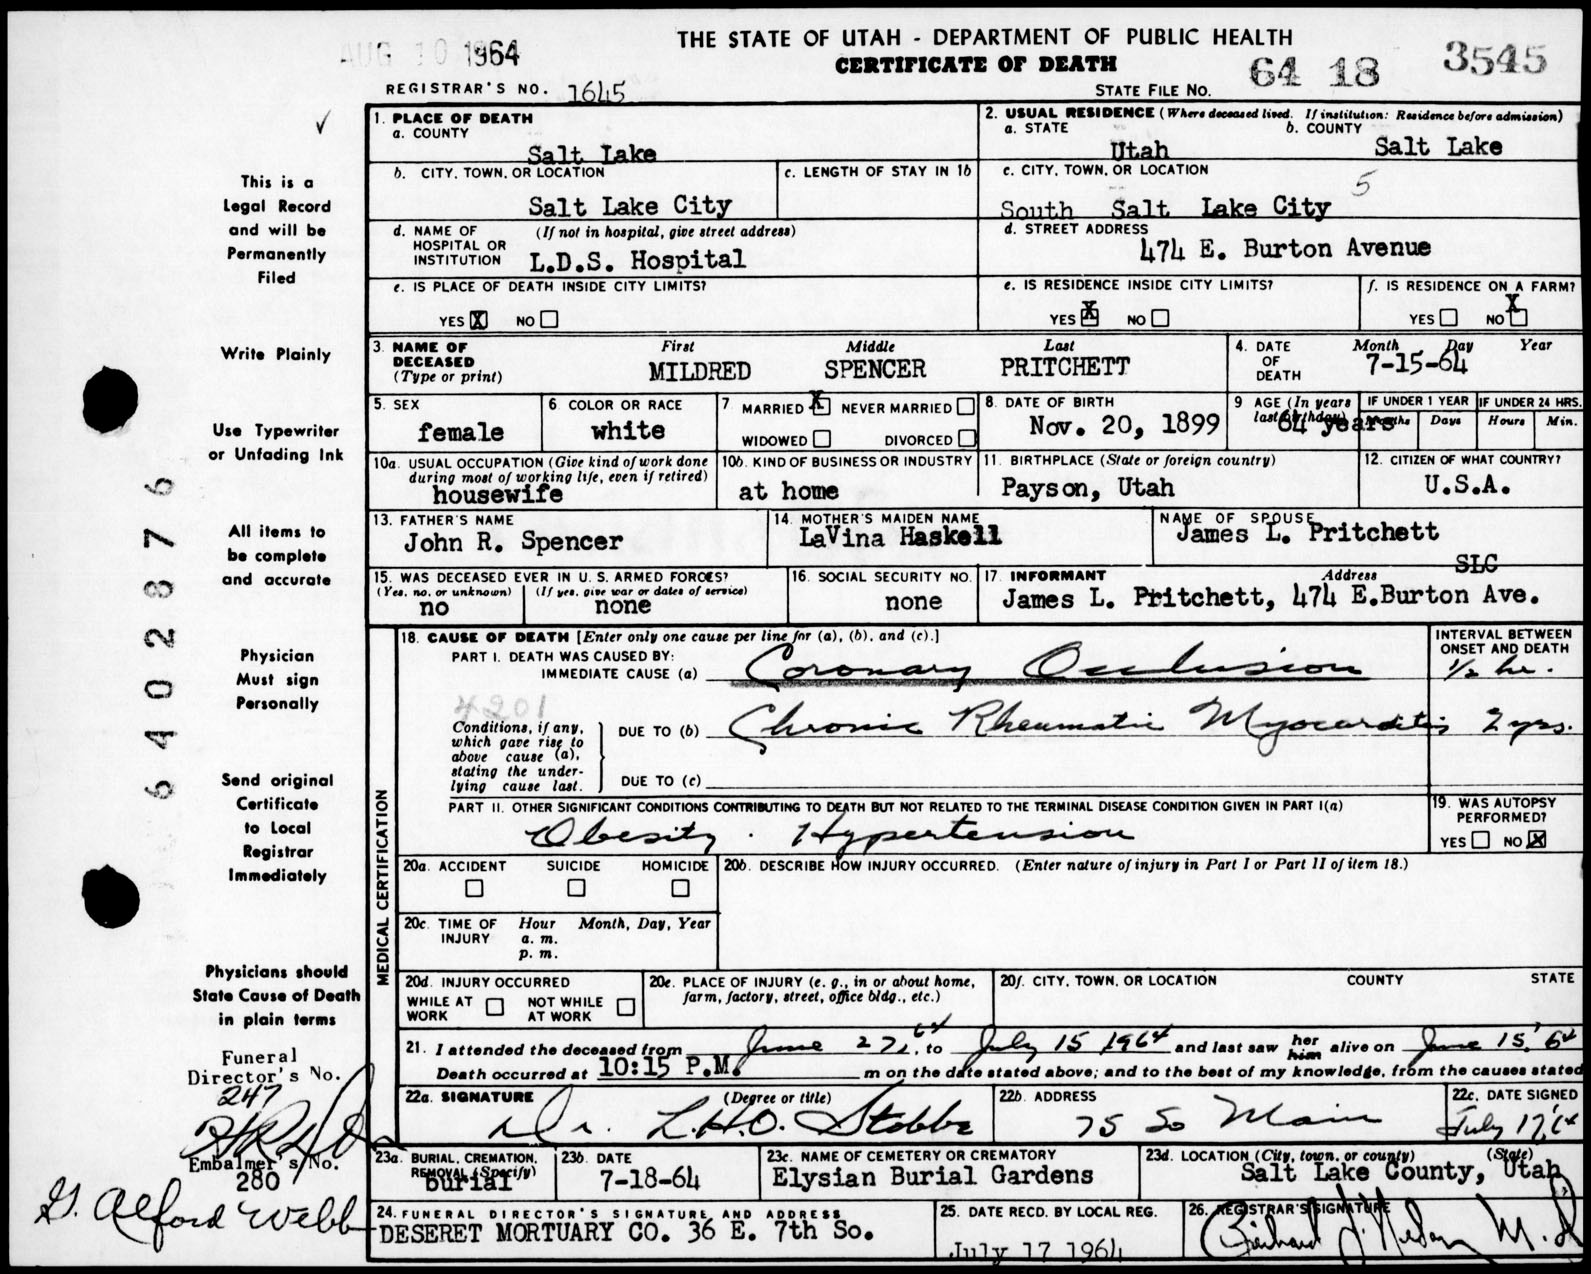 AUG 10 1964
THE STATE OF UTAH - DEPARTMENT OF PUBLIC HEALTH
CERTIFICATE OF DEATH
REGISTRAR'S NO. 1645
STATE FILE NO. 64 18 3545
1. PLACE OF DEATH
a. COUNTY
Salt Lake
2. USUAL RESIDENCE (Where deceased lived. If institution: Residence before admission)
a. STATE
Utah
b. COUNTY
Salt Lake
b. CITY, TOWN, OR LOCATION
Salt Lake City
c. LENGTH OF STAY IN 1b
c. CITY, TOWN, OR LOCATION
5
South Salt Lake City
d. NAME OF HOSPITAL OR INSTITUTION
(If not in hospital, give street address)
L.D.S. Hospital
d. STREET ADDRESS
474 E. Burton Avenue
e. IS PLACE OF DEATH INSIDE CITY LIMITS?
YES X NO
e. IS RESIDENCE INSIDE CITY LIMITS?
YES X NO
f. IS RESIDENCE ON A FARM?
YES NO X
3. NAME OF DECEASED (Type or print)
First Middle Last
MILDRED SPENCER PRITCHETT
4. DATE OF DEATH
Month Day Year
7-15-64
5. SEX
female
6 COLOR OR RACE
white
7 MARRIED X NEVER MARRIED
WIDOWED DIVORCED
8. DATE OF BIRTH
Nov. 20, 1899
9 AGE (In years last birthday)
64 years
IF UNDER 1 YEAR
Months Days
IF UNDER 24 HRS.
Hours Min.
10a. USUAL OCCUPATION (Give kind of work done during most of working life, even if retired)
housewife
10b. KIND OF BUSINESS OR INDUSTRY
at home
11. BIRTHPLACE (State or foreign country)
Payson, Utah
12. CITIZEN OF WHAT COUNTRY?
U.S.A.
13. FATHER'S NAME
John R. Spencer
14. MOTHER'S MAIDEN NAME
LaVina Haskell
NAME OF SPOUSE
James L. Pritchett
15. WAS DECEASED EVER IN U. S. ARMED FORCES?
(Yes, no, or unknown)
no
(If yes, give war or dates of service)
none
16. SOCIAL SECURITY NO.
none
17. INFORMANT Address
SLC
James L. Pritchett, 474 E.Burton Ave.
MEDICAL CERTIFICATION
18. CAUSE OF DEATH [Enter only one cause per line for (a), (b), and (c).]
PART I. DEATH WAS CAUSED BY:
IMMEDIATE CAUSE (a) Coronary Occlusion
INTERVAL BETWEEN ONSET AND DEATH
1/2 hr.
4201
Conditions, if any, which gave rise to above cause (a), stating the underlying cause last.
DUE TO (b) Chronic Rheumatic Myocarditis 2 yrs.
DUE TO (c)
PART II. OTHER SIGNIFICANT CONDITIONS CONTRIBUTING TO DEATH BUT NOT RELATED TO THE TERMINAL DISEASE CONDITION GIVEN IN PART I(a)
Obesity . Hypertension
19. WAS AUTOPSY PERFORMED?
YES NO X
20a. ACCIDENT SUICIDE HOMICIDE
20b. DESCRIBE HOW INJURY OCCURRED. (Enter nature of injury in Part I or Part II of item 18.)
20c. TIME OF INJURY
Hour Month, Day, Year
a. m.
p. m.
20d. INJURY OCCURRED
WHILE AT WORK NOT WHILE AT WORK
20e. PLACE OF INJURY (e. g., in or about home, farm, factory, street, office bldg., etc.)
20f. CITY, TOWN, OR LOCATION COUNTY STATE
21. I attended the deceased from June 27, 64 to July 15 1964 and last saw her him alive on June 15, '64
Death occurred at 10:15 P.M. m on the date stated above; and to the best of my knowledge, from the causes stated
22a. SIGNATURE (Degree or title)
Dr. L.H.O. Stobbe
22b. ADDRESS
75 So Main
22c. DATE SIGNED
July 17, 64
23a. BURIAL, CREMATION, REMOVAL (Specify)
burial
23b. DATE
7-18-64
23c. NAME OF CEMETERY OR CREMATORY
Elysian Burial Gardens
23d. LOCATION (City, town, or county) (State)
Salt Lake County, Utah
24. FUNERAL DIRECTOR'S SIGNATURE AND ADDRESS
DESERET MORTUARY CO. 36 E. 7th So.
25. DATE RECD. BY LOCAL REG.
July 17 1964
26. REGISTRAR'S SIGNATURE
M.D.
This is a
Legal Record
and will be
Permanently
Filed
Write Plainly
Use Typewriter
or Unfading Ink
All items to
be complete
and accurate
Physician
Must sign
Personally
Send original
Certificate
to Local
Registrar
Immediately
Physicians should
State Cause of Death
in plain terms
Funeral
Director's No.
247
Embalmer's No.
280
G. Alford Webb
6402876